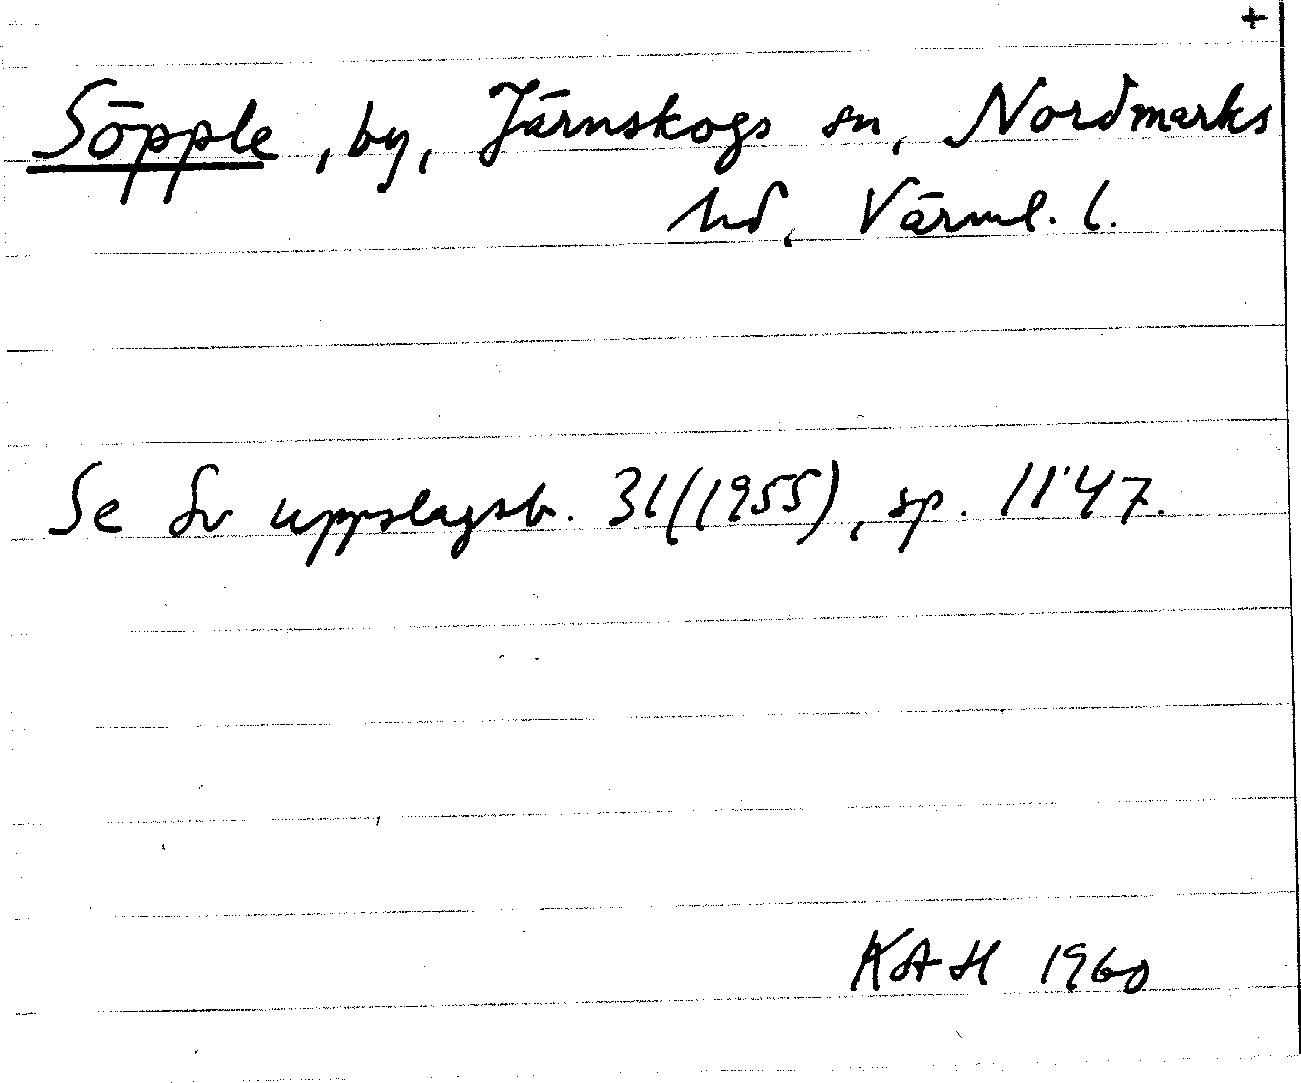 +
Söpple, by, Järnskogs sn, Nordmarks
hd, Värml. l.
Se Sv uppslagsb. 31 (1955), sp. 1147.
KAH 1960